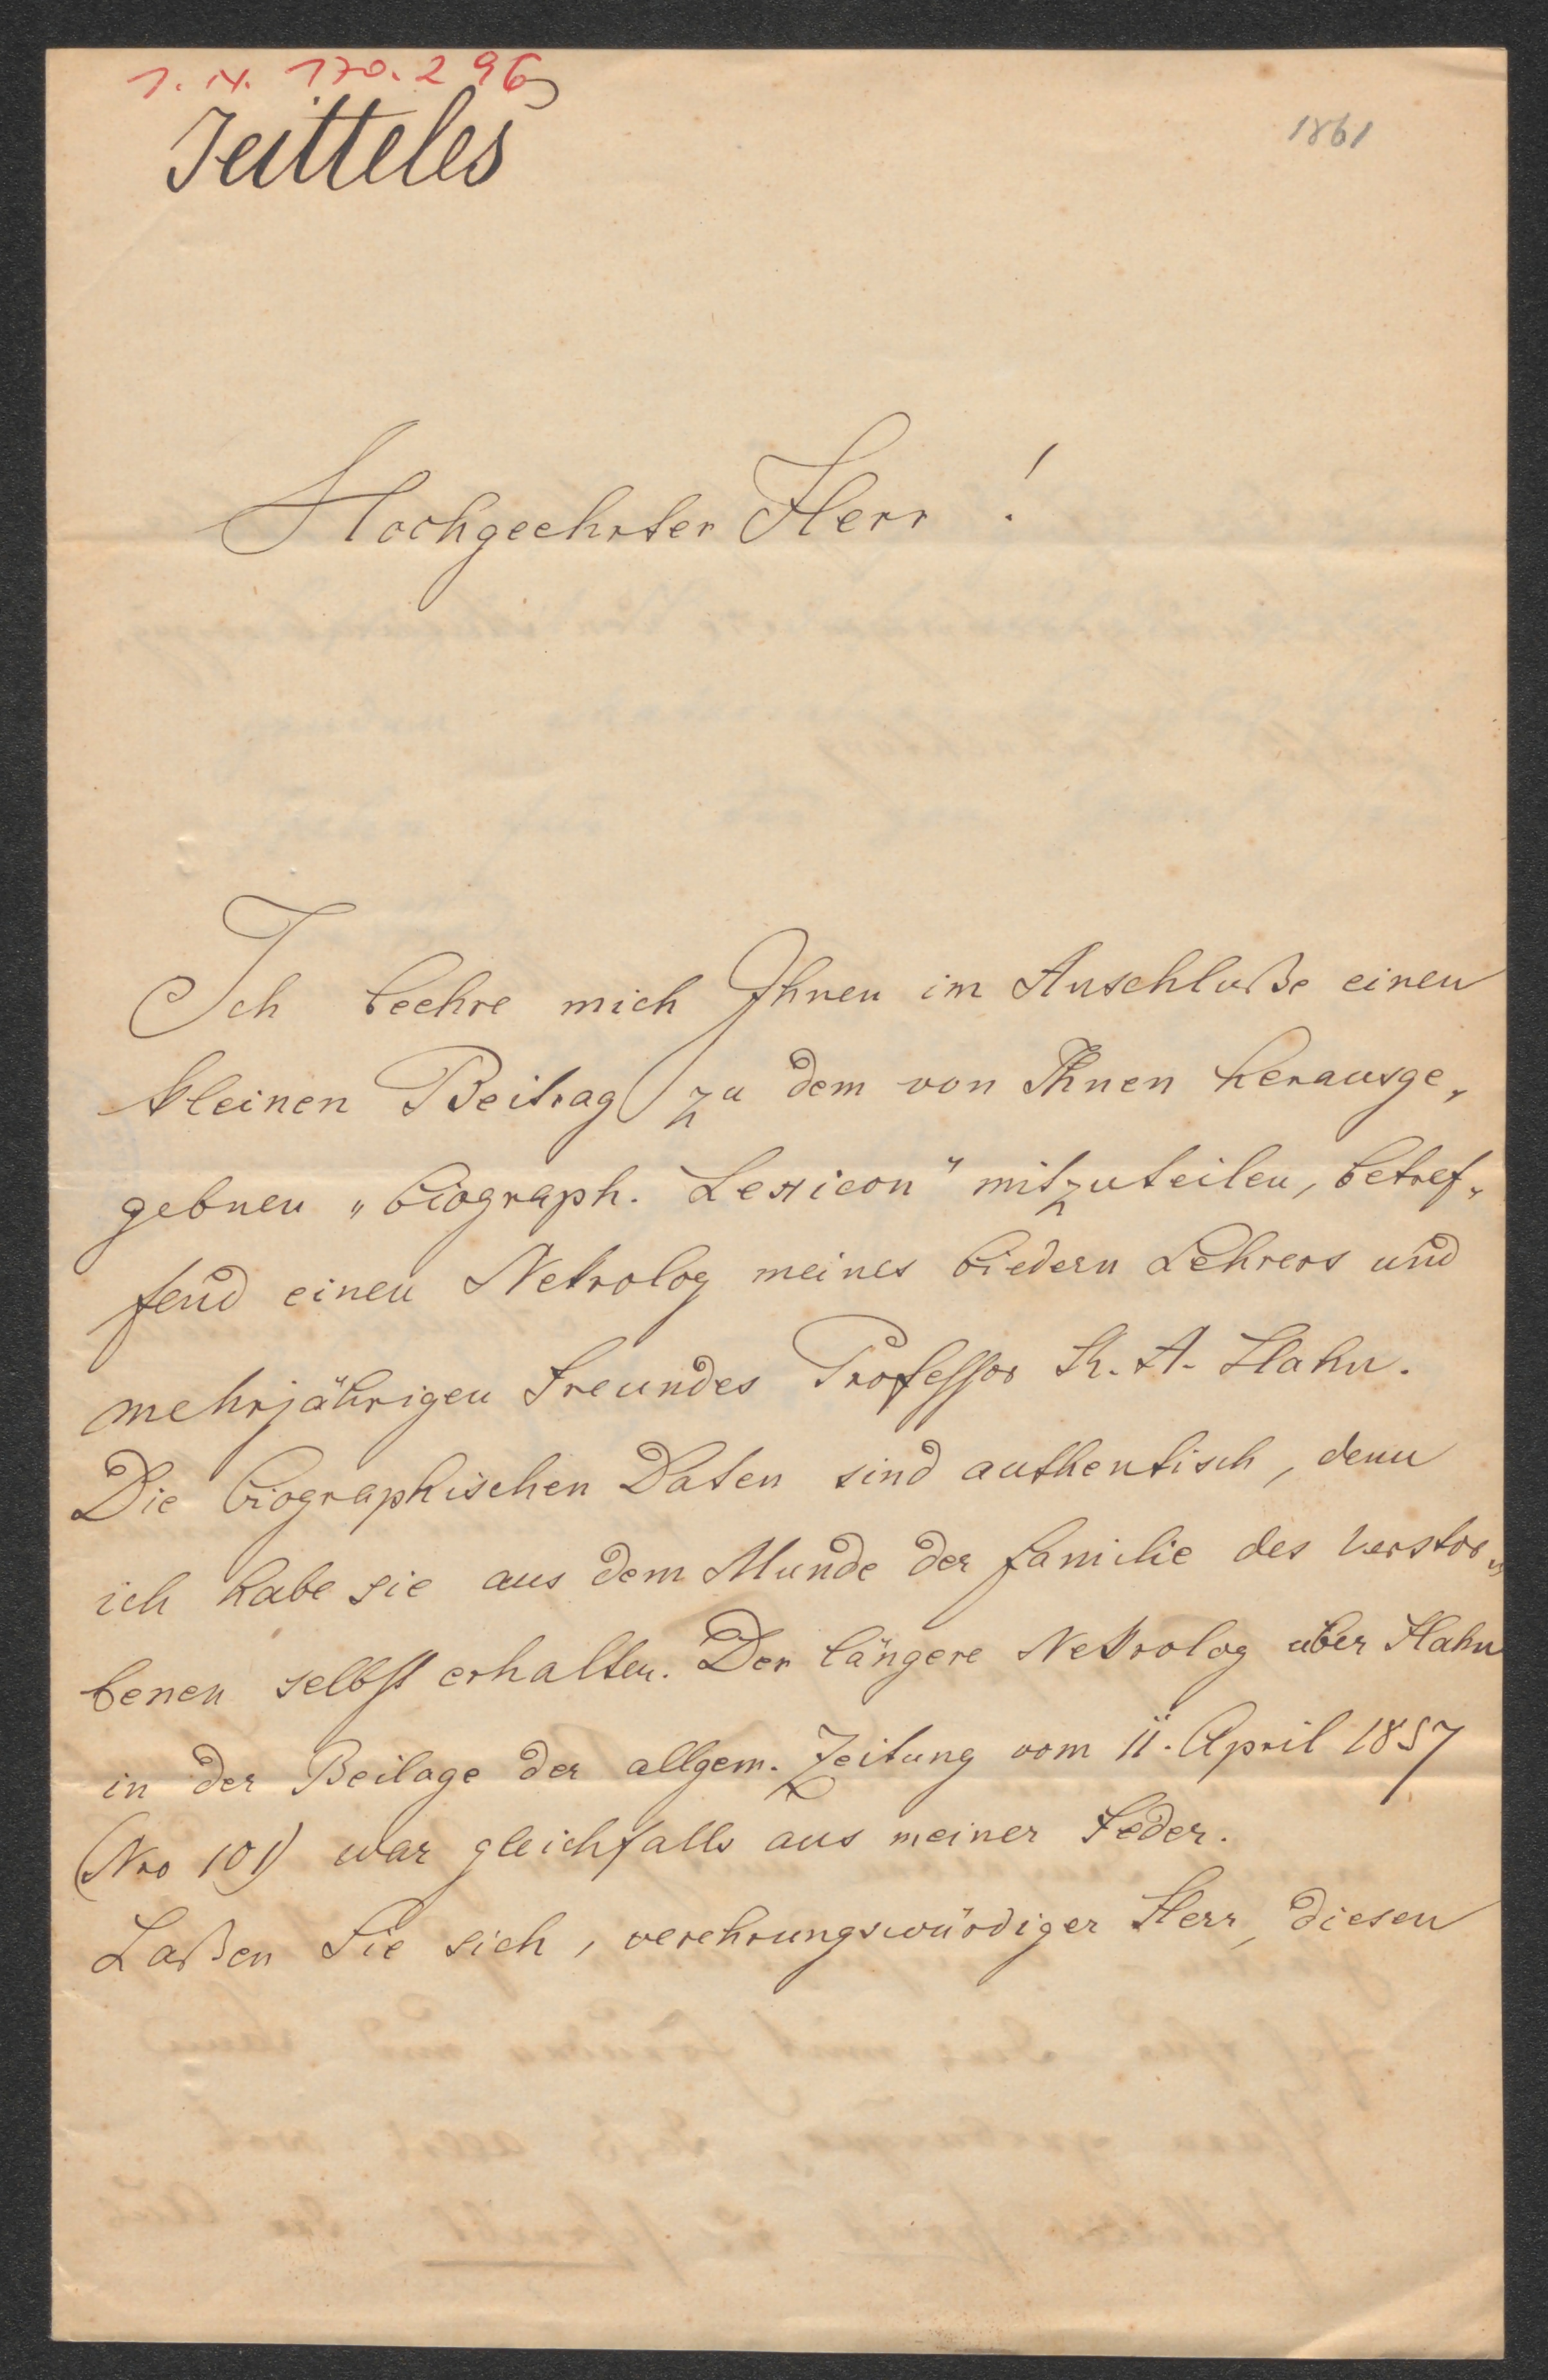 I. N. 170.296
Jeitteles
1861
Hochgeehrter Herr !
Ich beehre mich Ihnen im Anschluße einen
kleinen Beitrag zu dem von Ihnen herausge-
gebnen „biograph. Lexicon" mitzuteilen, betref-
fend einen Nekrolog meines biedern Lehrers und
mehrjährigen Freundes Professor K. A. Hahn.
Die biographischen Daten sind authentisch, denn
ich habe sie aus dem Munde der Familie des Verstor-
benen selbst erhalten. Der längere Nekrolog über Hahn
in der Beilage der allgem. Zeitung vom 11. April 1857
(Nro 101) war gleichfalls aus meiner Feder.
Laßen Sie sich, verehrungswürdiger Herr, diesen